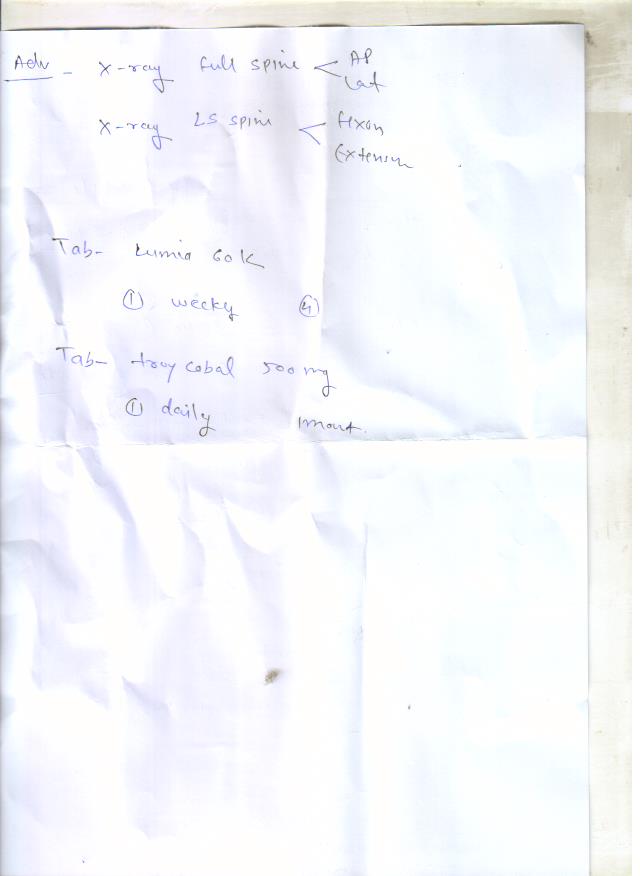 Adv - X-ray full spine < AP
Lat
X-ray LS spine < flexon
Extension
Tab- Lumia 60K
① weekly ④
Tab- troycobal 500 mg
① daily 1 mont.